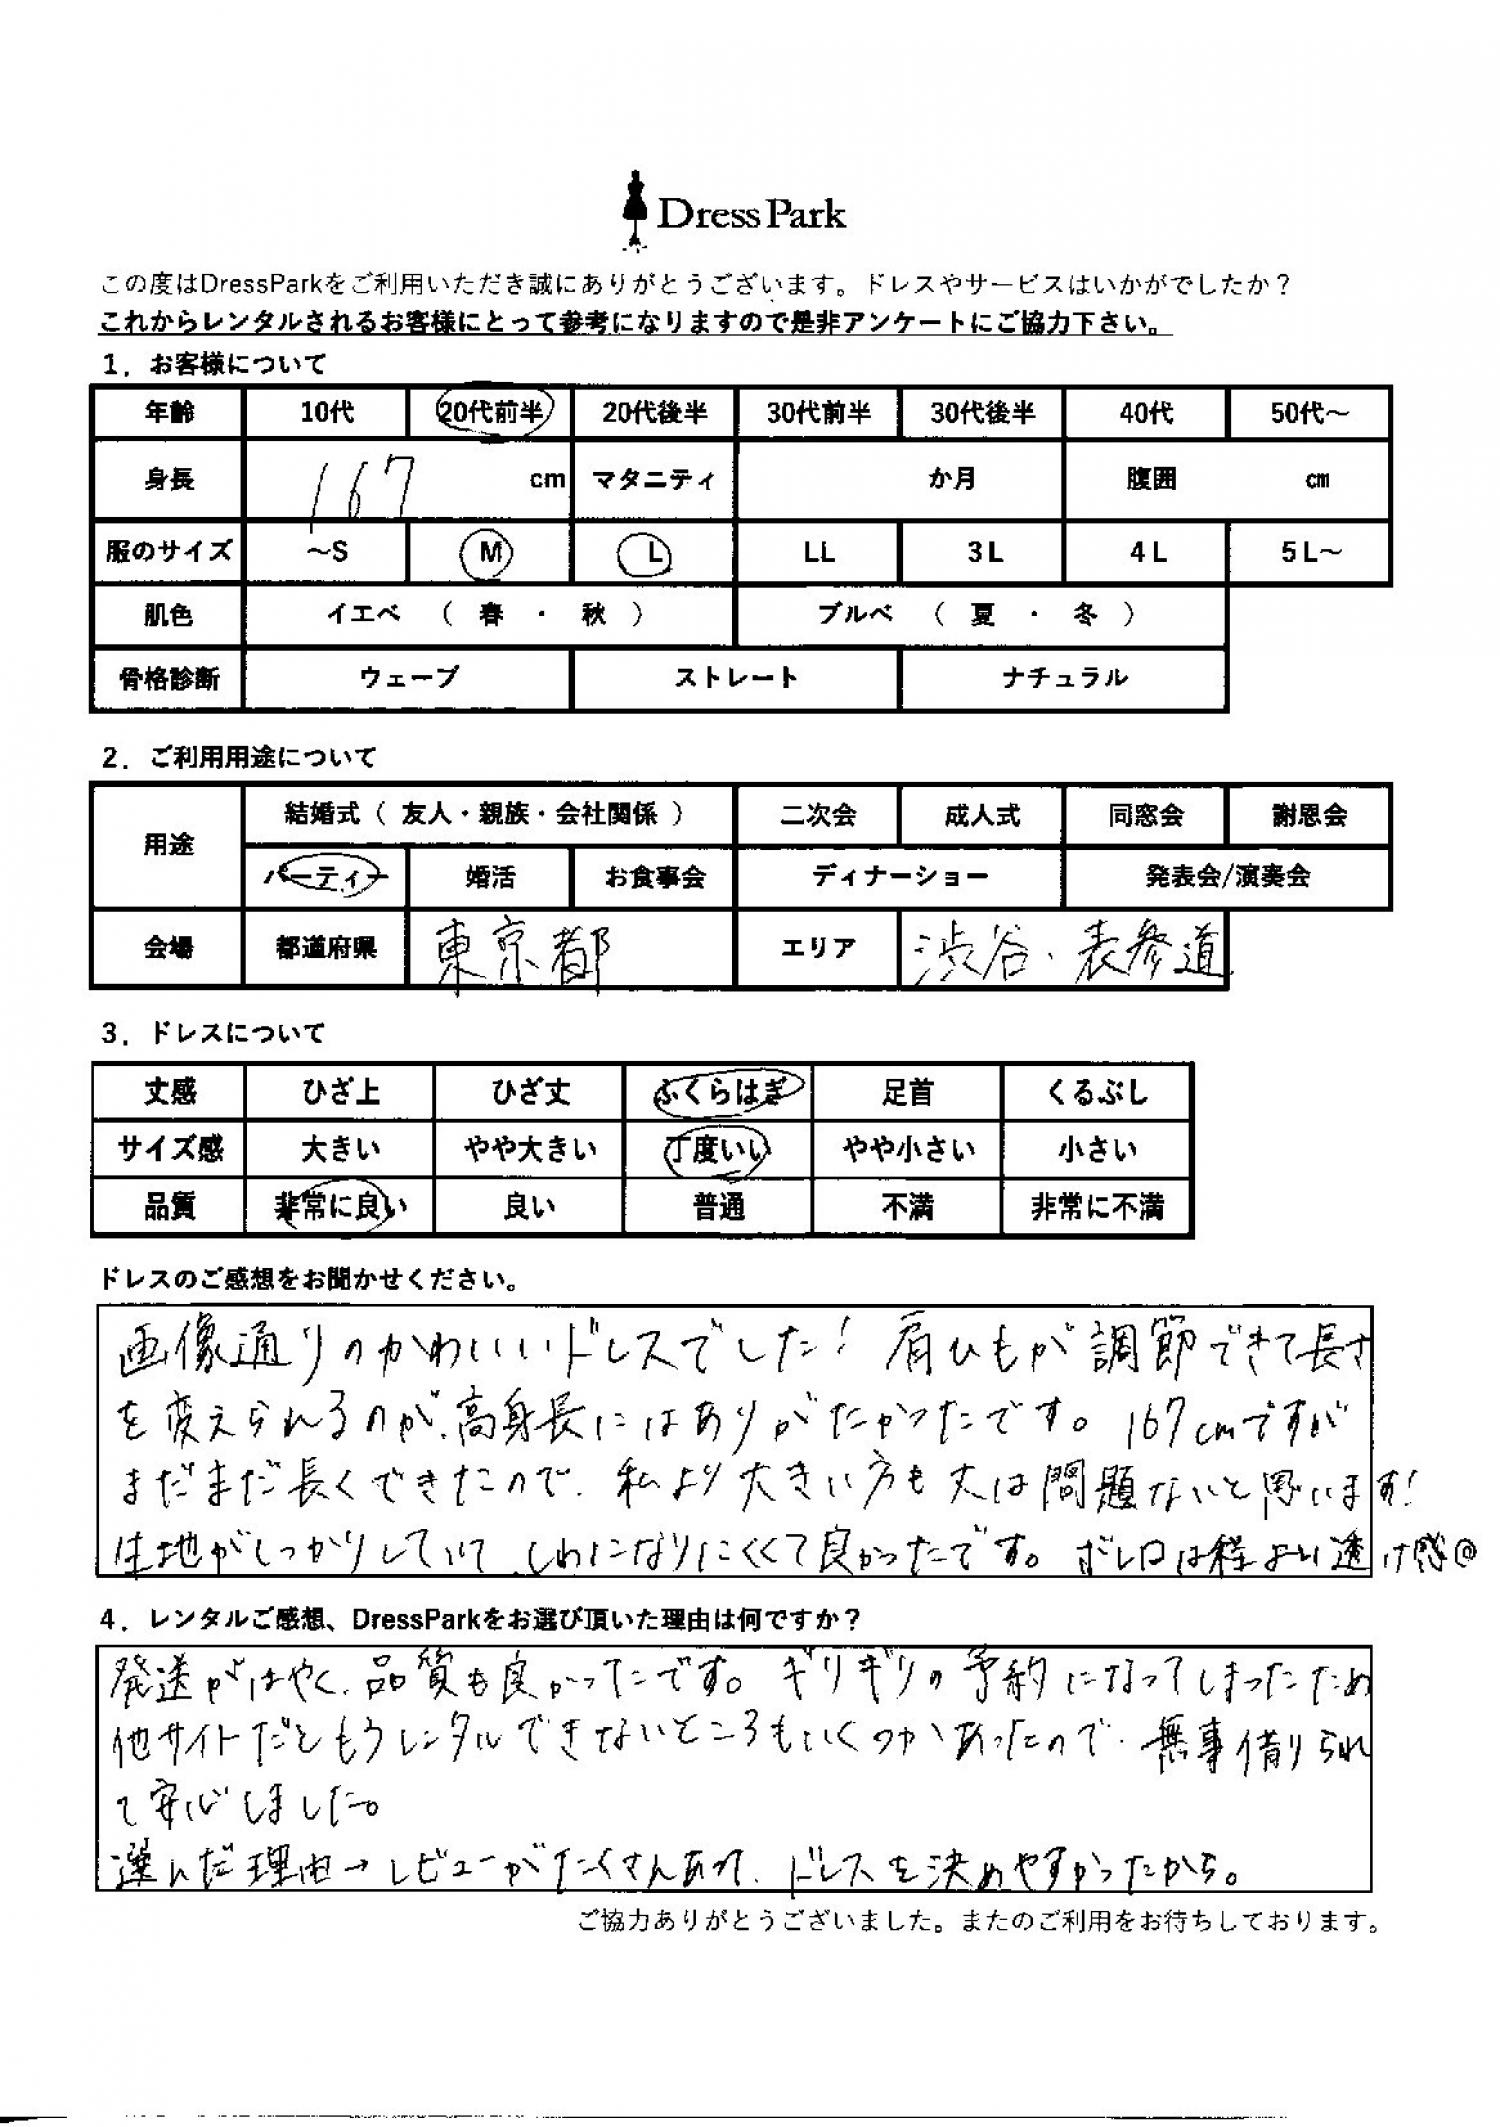 Dress Park
この度はDressParkをご利用いただき誠にありがとうございます。ドレスやサービスはいかがでしたか？
これからレンタルされるお客様にとって参考になりますので是非アンケートにご協力下さい。
1．お客様について
年齢 10代 20代前半 20代後半 30代前半 30代後半 40代 50代～
身長 167 cm マタニティ か月 腹囲 ㎝
服のサイズ ～S M L LL 3L 4L 5L～
肌色 イエベ （ 春 ・ 秋 ） ブルベ （ 夏 ・ 冬 ）
骨格診断 ウェーブ ストレート ナチュラル
2．ご利用用途について
用途 結婚式（ 友人・親族・会社関係 ） 二次会 成人式 同窓会 謝恩会
パーティー 婚活 お食事会 ディナーショー 発表会/演奏会
会場 都道府県 東京都 エリア 渋谷・表参道
3．ドレスについて
丈感 ひざ上 ひざ丈 ふくらはぎ 足首 くるぶし
サイズ感 大きい やや大きい 丁度いい やや小さい 小さい
品質 非常に良い 良い 普通 不満 非常に不満
ドレスのご感想をお聞かせください。
画像通りのかわいいドレスでした！肩ひもが調節できて長さ
を変えられるのが、高身長にはありがたかったです。167cmですが
まだまだ長くできたので、私より大きい方も丈は問題ないと思います！
生地がしっかりしていて、しわになりにくくて良かったです。ボレロは程よい透け感◎
4．レンタルご感想、DressParkをお選び頂いた理由は何ですか？
発送がはやく、品質も良かったです。ギリギリの予約になってしまったため
他サイトだともうレンタルできないところもいくつかあったので、無事借りられ
て安心しました。
選んだ理由→レビューがたくさんあって、ドレスを決めやすかったから。
ご協力ありがとうございました。またのご利用をお待ちしております。